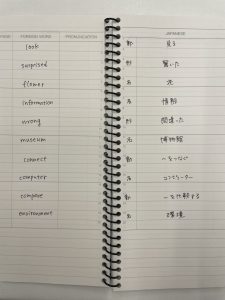 PAGE FOREIGN WORD PRONUNCIATION JAPANESE
look 動 見る
surprised 形 驚いた
flower 名 花
information 名 情報
wrong 形 間違った
museum 名 博物館
connect 動 〜をつなぐ
computer 名 コンピューター
compare 動 〜を比較する
environment 名 環境